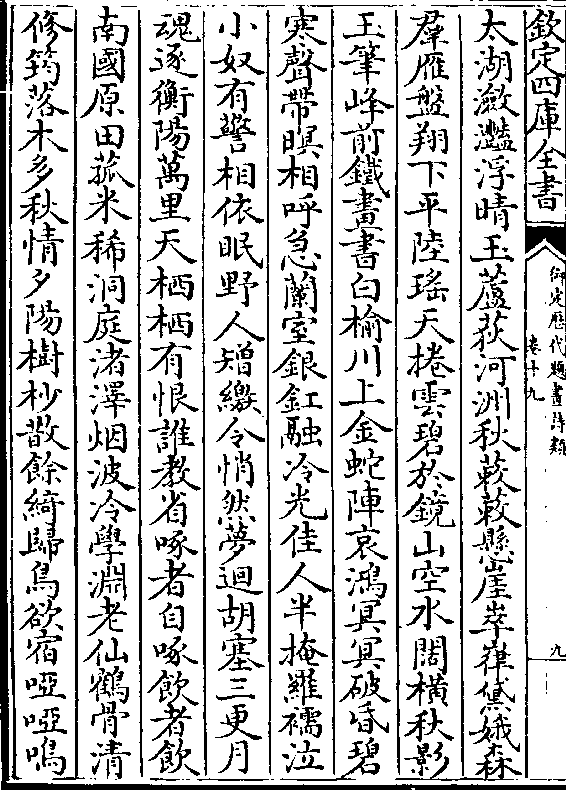 欽定四庫全書
御定歴代題畫詩類
卷十九
九
太湖瀲灔浮晴玉蘆荻河洲秋蔌蔌懸崖崒嵂黛娥森
羣雁盤翔下平陸瑤天捲雲碧於鏡山空水闊橫秋影
玉筆峰前鐵畫書白榆川上金蛇陣哀鴻冥冥破昏碧
寒聲帶暝相呼急蘭室銀釭融冷光佳人半掩羅襦泣
小奴有警相依眠野人矰繳令悄然夢迴胡塞三更月
魂逐衡陽萬里天栖栖有恨誰教省啄者自啄飲者飲
南國原田菰米稀洞庭渚澤烟波冷學淵老仙鶴骨清
修筠落木多秋情夕陽樹杪散餘綺歸鳥欲宿啞啞鳴